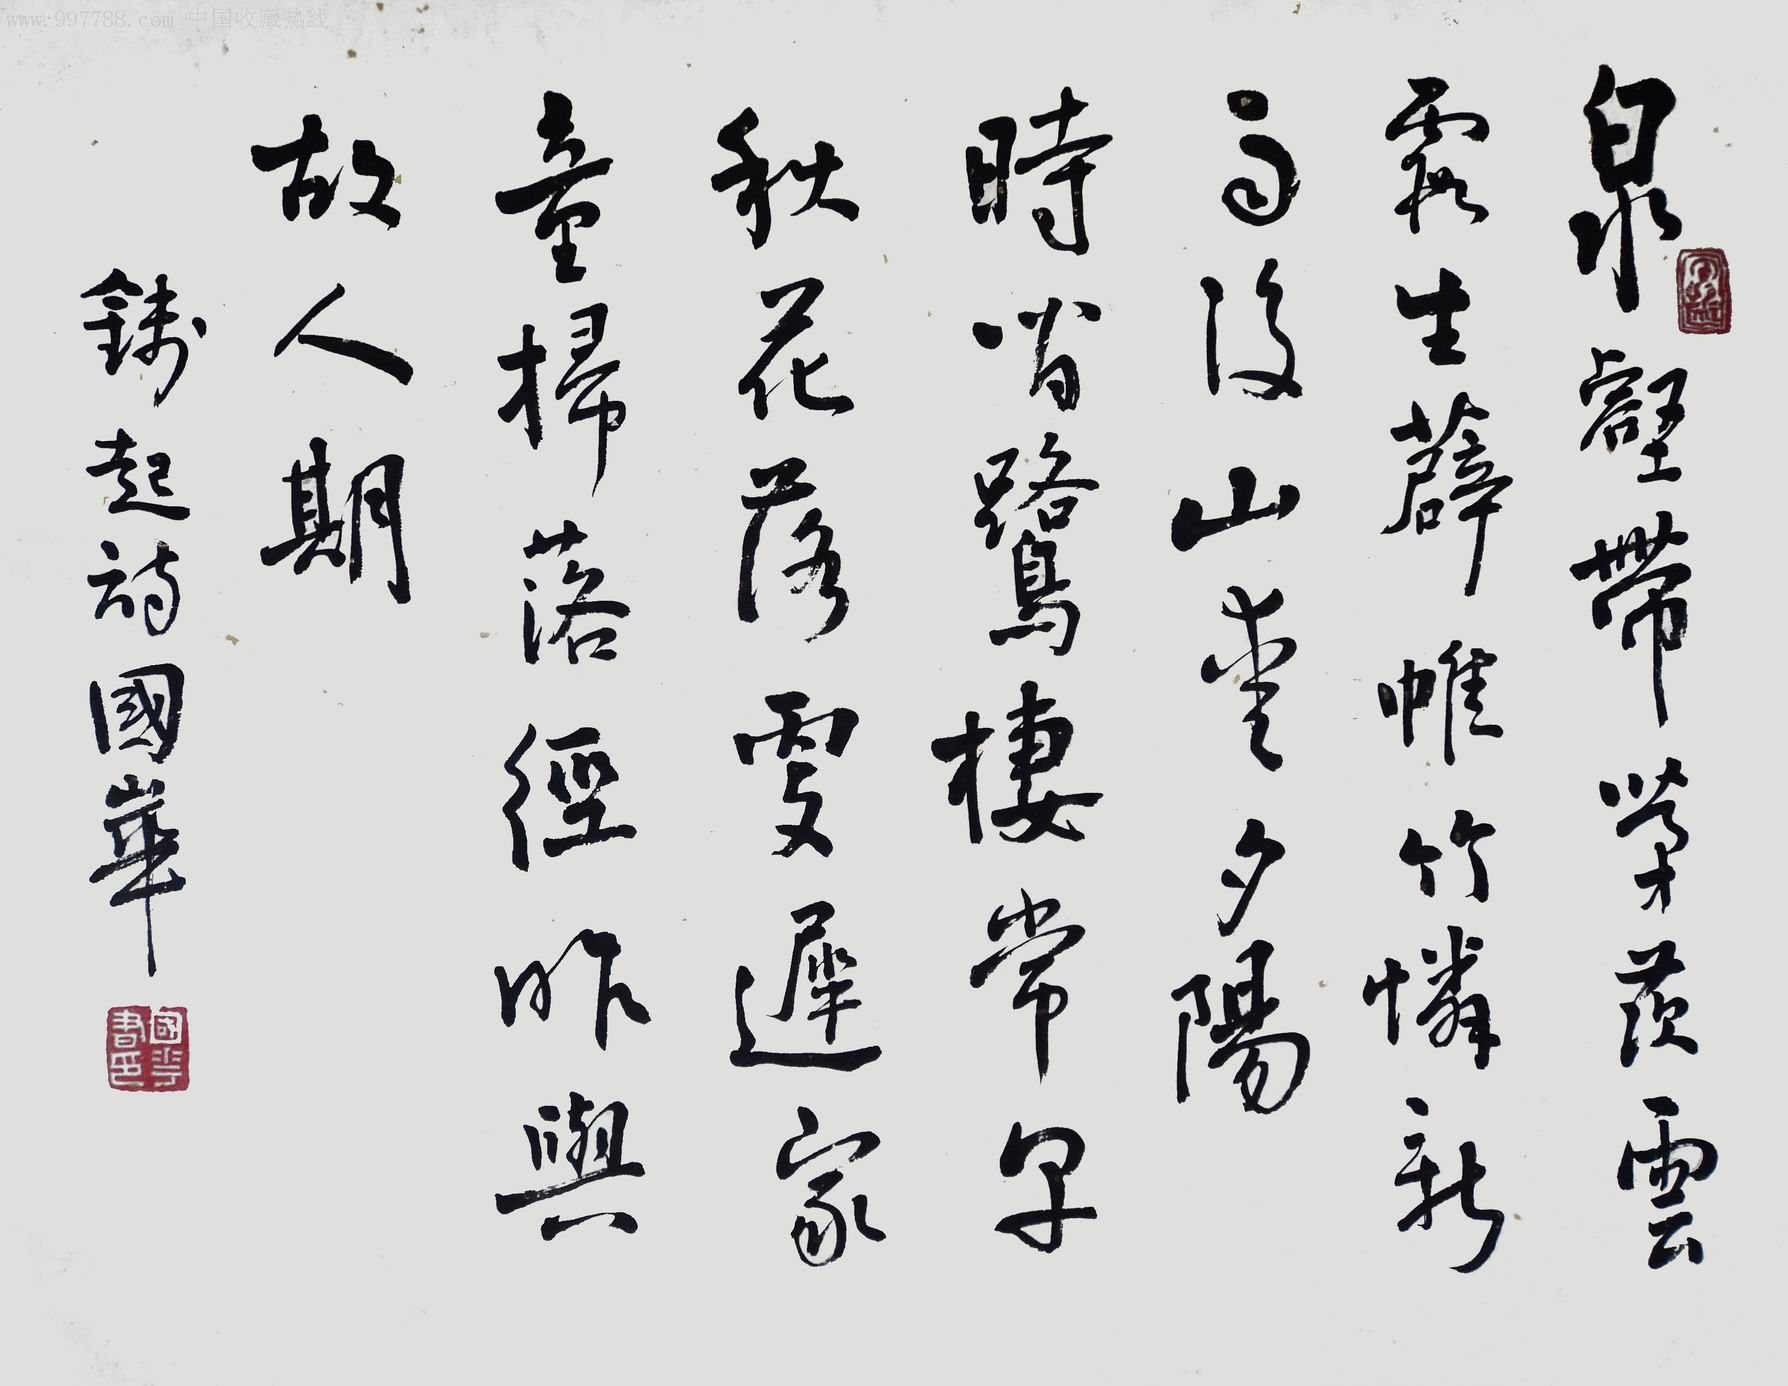 www.997788.com 中国收藏热线
泉壑帶茅茨雲
霞生薜帷竹憐新
雨後山愛夕陽
時閒鷺棲常早
秋花落更遲家
童掃落徑昨與
故人期
錢起詩國華
國華書印